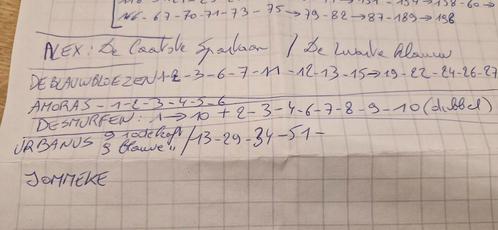 N6-67-70-71-73-75→79-82→87-189→198
ALEX: De Laatste Spartaan / De zwarte klauw
DE BLAUWBLOEZEN 1-2-3-6-7-11-12-13-15→19-22-24-26-27
AMORAS-1-2-3-4-5-6
DESMURFEN: 1→10 + 2-3-4-6-7-8-9-10 (dubbel)
URBANUS 9 rodekaft /13-29-34-51-
9 blauwe "
JOMMEKE